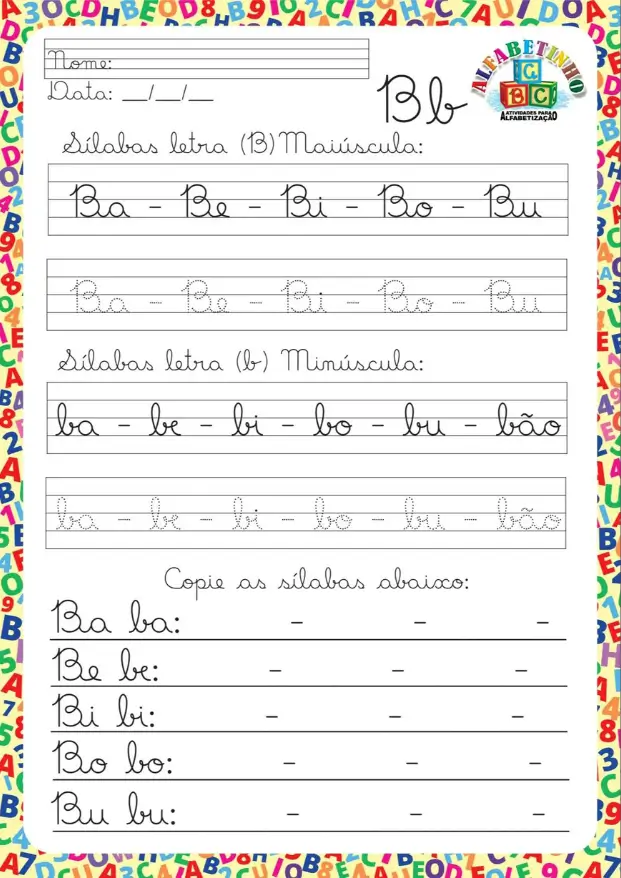 Nome:
Data: __/__/__
Bb
ALFABETINHO
C
B C
ATIVIDADES PARA
ALFABETIZAÇÃO
Sílabas letra (B) Maiúscula:
Ba - Be - Bi - Bo - Bu
Ba - Be - Bi - Bo - Bu
Sílabas letra (b) Minúscula:
ba - be - bi - bo - bu - bão
ba - be - bi - bo - bu - bão
Copie as sílabas abaixo:
Ba ba: - - -
Be be: - - -
Bi bi: - - -
Bo bo: - - -
Bu bu: - - -